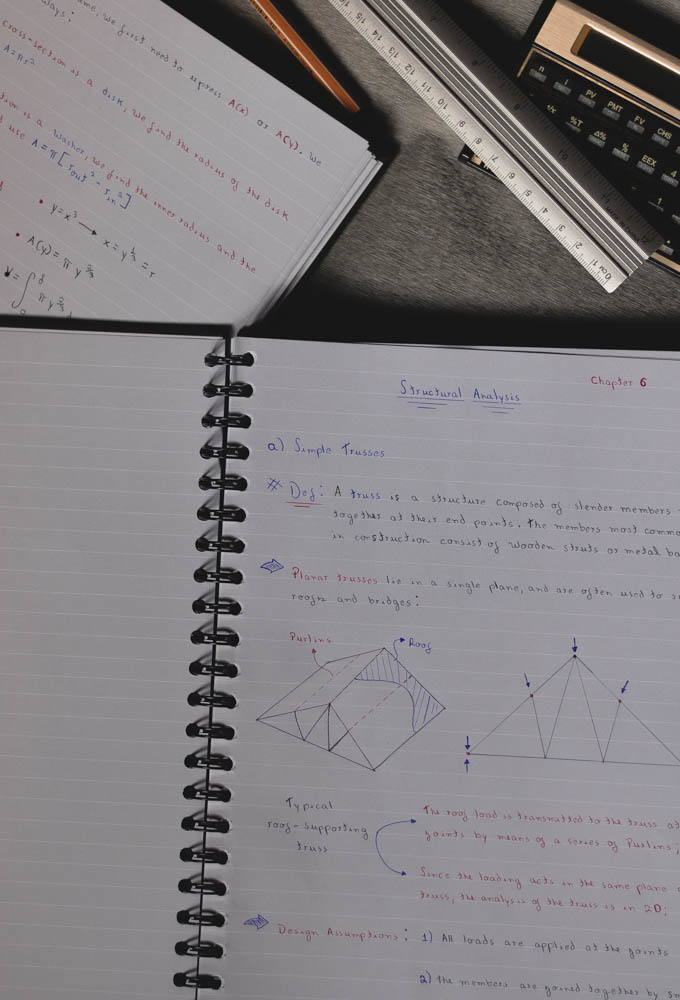 ways:
we first need to express A(x) or A(y). We
cross-section is a disk, we find the radius of the disk
A = πr²
is a washer, we find the inner radius and the
use A = π[r_out² - r_in²]
• y = x³ → x = y^(1/3) = r
• A(y) = π y^(2/3)
V = ∫ π y^(2/3)
15 14 13 12 11 10 9 8 7 6 5 4 3 2 1 0
n i PV PMT FV CHS
%T Δ% % EEX 4
1
Chapter 6
Structural Analysis
a) Simple Trusses
Def: A truss is a structure composed of slender members
together at their end points. The members most
in construction consist of wooden struts or metal
Planar trusses lie in a single plane, and are often used to
and bridges:
Purlins
Roof
Typical
roof-supporting
truss
The roof load is transmitted to the truss at
joints by means of a series of Purlins;
Since the loading acts in the same plane
truss, the analysis of the truss is in 2D;
Design Assumptions: 1) All loads are applied at the joints
2) The members are joined together by